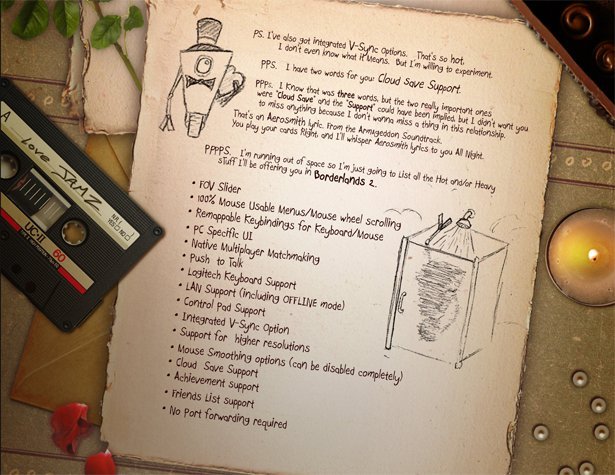 PS. I've also got integrated V-Sync Options. That's so hot.
I don't even know what it Means. But I'm willing to experiment.
PPS. I have two words for you: Cloud Save Support.
PPPs. I Know that was three words, but the two really important ones
were "Cloud Save" and the "Support" could have been implied, but I didn't want you
to miss anything because I don't wanna miss a thing in this relationship.
That's an Aerosmith lyric. From the Armageddon Soundtrack.
You play your cards Right, and I'll whisper Aerosmith lyrics to you All Night.
PPPPS. I'm running out of space so I'm just going to List all the Hot and/or Heavy
stuff I'll be offering you in Borderlands 2.
• FOV Slider
• 100% Mouse Usable Menus/Mouse wheel scrolling
• Remappable Keybindings for Keyboard/Mouse
• PC Specific UI
• Native Multiplayer Matchmaking
• Push to Talk
• Logitech Keyboard Support
• LAN Support (including OFFLINE mode)
• Control Pad Support
• Integrated V-Sync Option
• Support for higher resolutions
• Mouse Smoothing options (can be disabled completely)
• Cloud Save Support
• Achievement support
• Friends List support
• No Port forwarding required
A
Love JAMZ
60